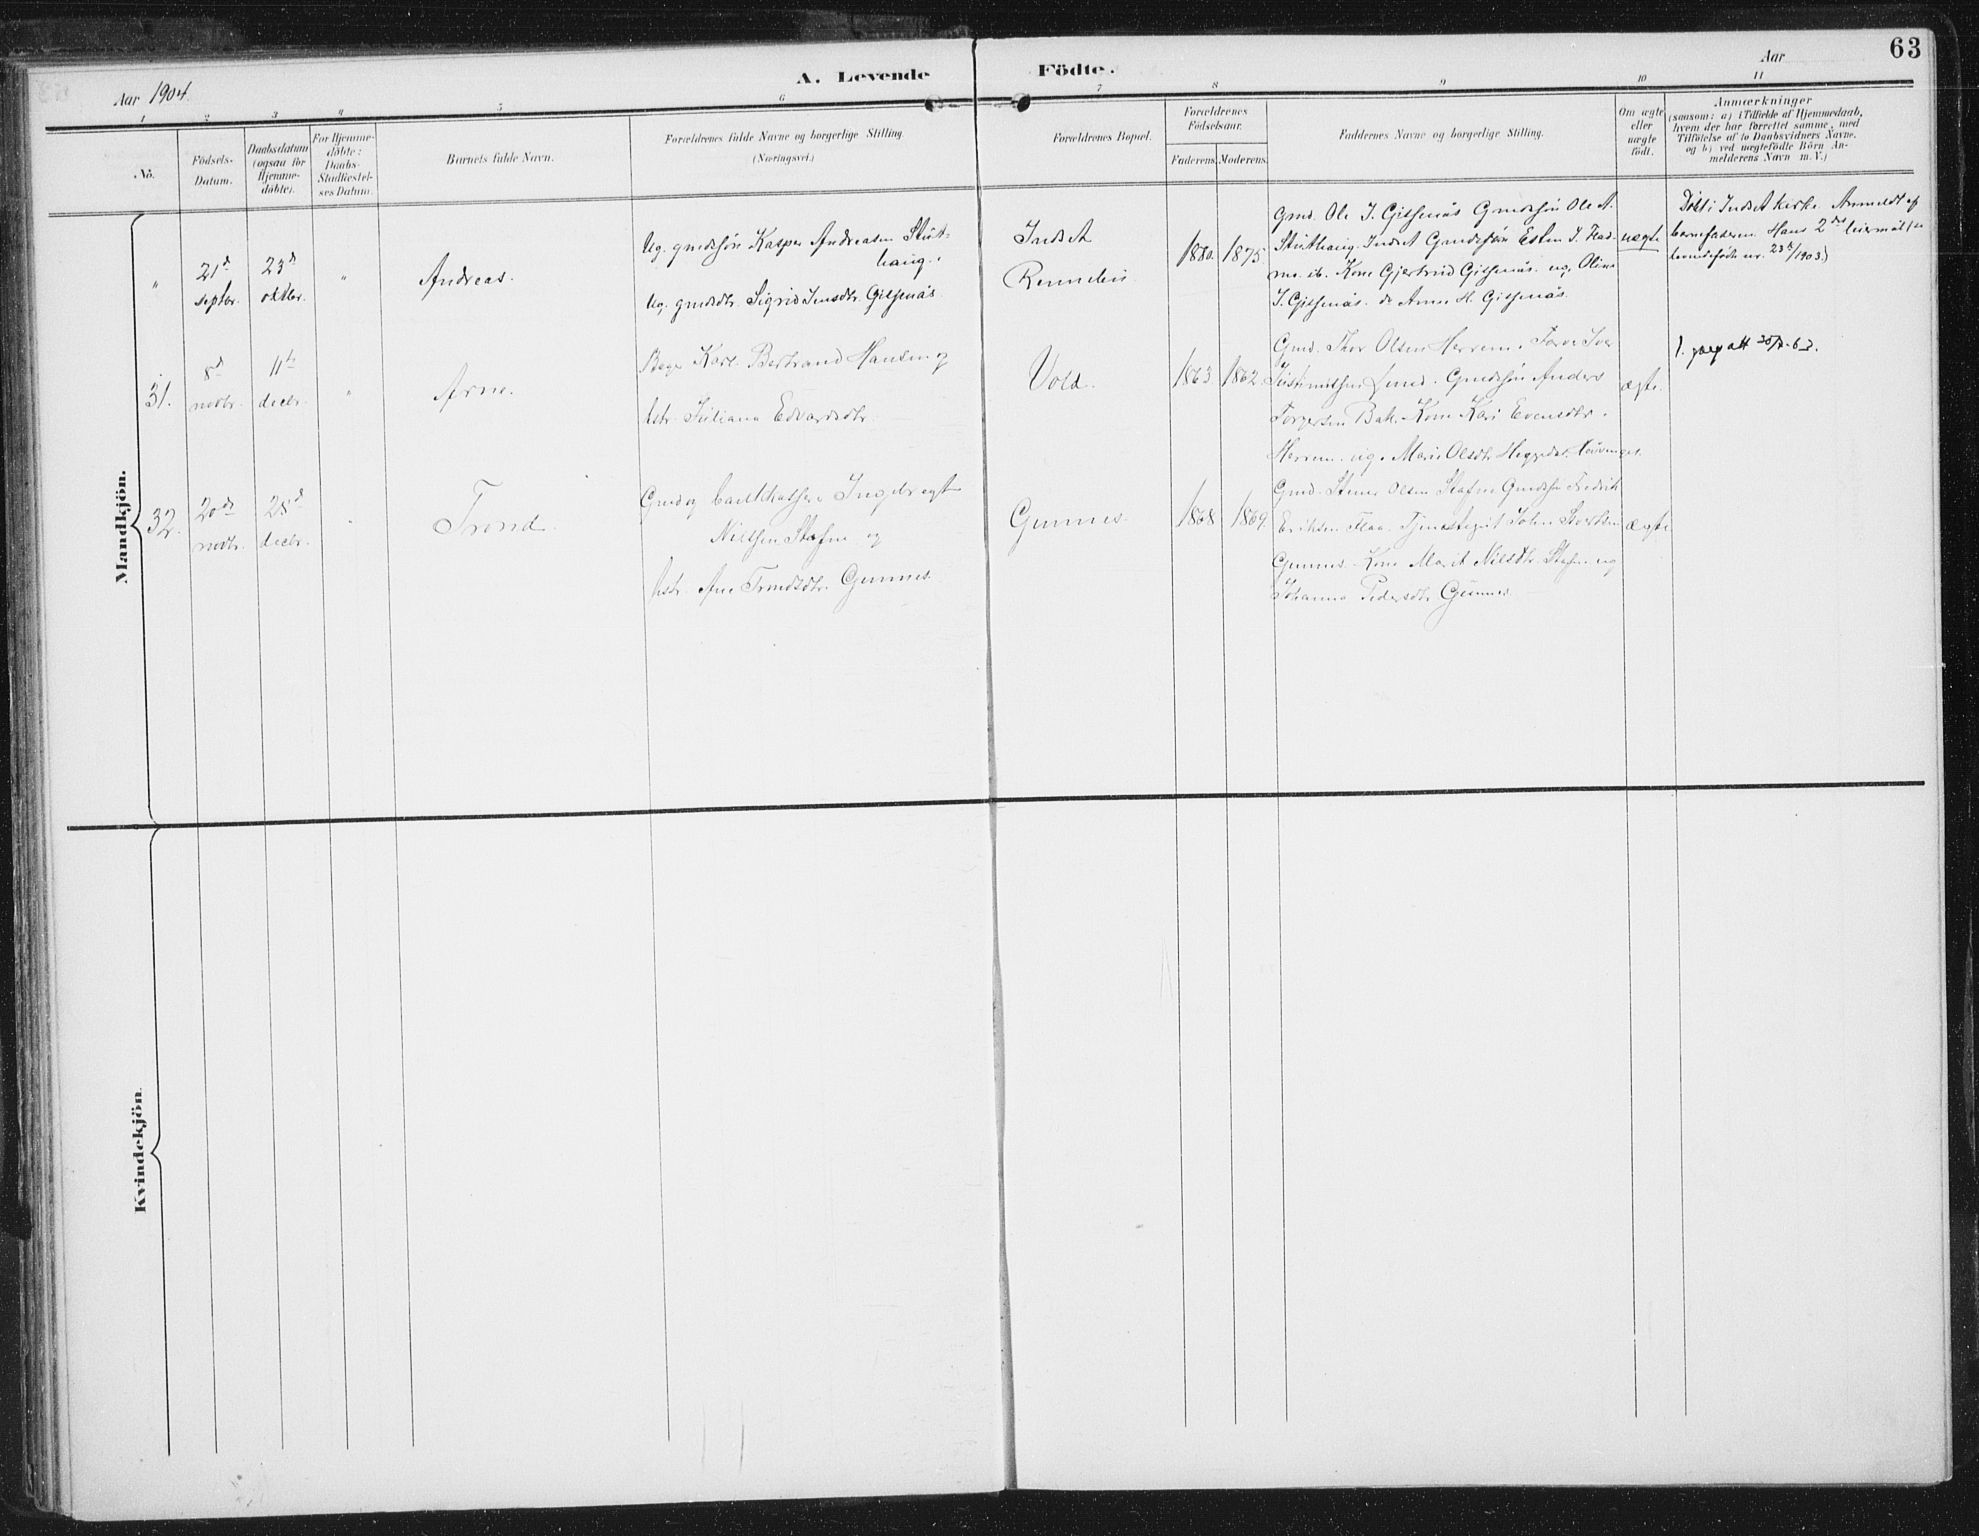 63
Aar 1904.
A. Levende Födte.
Aar
1 2 3 4 5 6 7 8 9 10 11
No.
Födsels-Datum.
Daabsdatum (ogsaa for Hjemme-döbte).
For Hjemme-döbte: Daabs-Stadfæstel-ses Datum.
Barnets fulde Navn.
Forældrenes fulde Navne og borgerlige Stilling
(Næringsvei.)
Forældrenes Bopæl.
Forældrenes Födselsaar.
Faderens. Moderens.
Faddernes Navne og borgerlige Stilling.
Om ægte eller uægte födt.
Anmærkninger
(saasom: a) i Tilfælde af Hjemmedaab,
hvem der har forrettet samme, med
Tilföielse af to Daabsvidners Navne.
og b) ved uægtefödte Börn An-
melderens Navn m. V.)
Mandkjön.
" 21d septbr. 23d oktbr. " Andreas.
Ug. gmdsøn Kasper Andreasen Stut-
haug.
Ug. gmdsdtr. Sigrid Jensdtr. Gisnås.
Indset
Rennebu.
1880. 1875.
Gmd. Ole J. Gisnås Gmdsøn Ole A.
Stuthaug. Indset Gmdsøn Esten J.
ib. Kone Gjertrud Gisnås. ug. Oline
J. Gisnås. do Anne H. Gisnås.
uægte
Døbt i Indset kirke. Anmeldt af
barnefaderen. Hans 2det leiermål
levendefødte nr. 23 /1903.)
31. 8d novbr. 11te decbr. " Arne.
Karl Bertrand Hansen og
hstr. Juliana Edvardsdtr.
Vold.
1863. 1862.
Gmd. Thor Olsen Herrem. Iver
Lund. Gmdsøn Anders
Torgersen Bak. Kone Kari Evensdtr.
Herrem. ug. Marie Olsdtr.
ægte.
1. att 63.
32. 20de novbr. 25d decbr. " Trond.
Gmd og Ingebrigt
Nilsen Stafne og
hstr. Ane Trondsdtr. Gunnes.
Gunnes.
1868 1869.
Gmd. Olsen Stafne Gmdsøn Fredrik
Eriksen Flaa. Tjenestegut John
Gunnes. Kone Marit Nilsdtr. Stafne og
Johanna Pedersdtr Gunnes.
ægte
Kvindekjön.